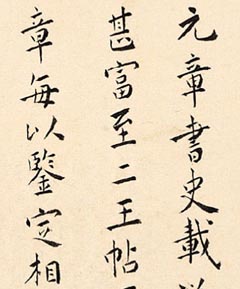 元章書史載
甚富至二王帖
章每以鑒定相